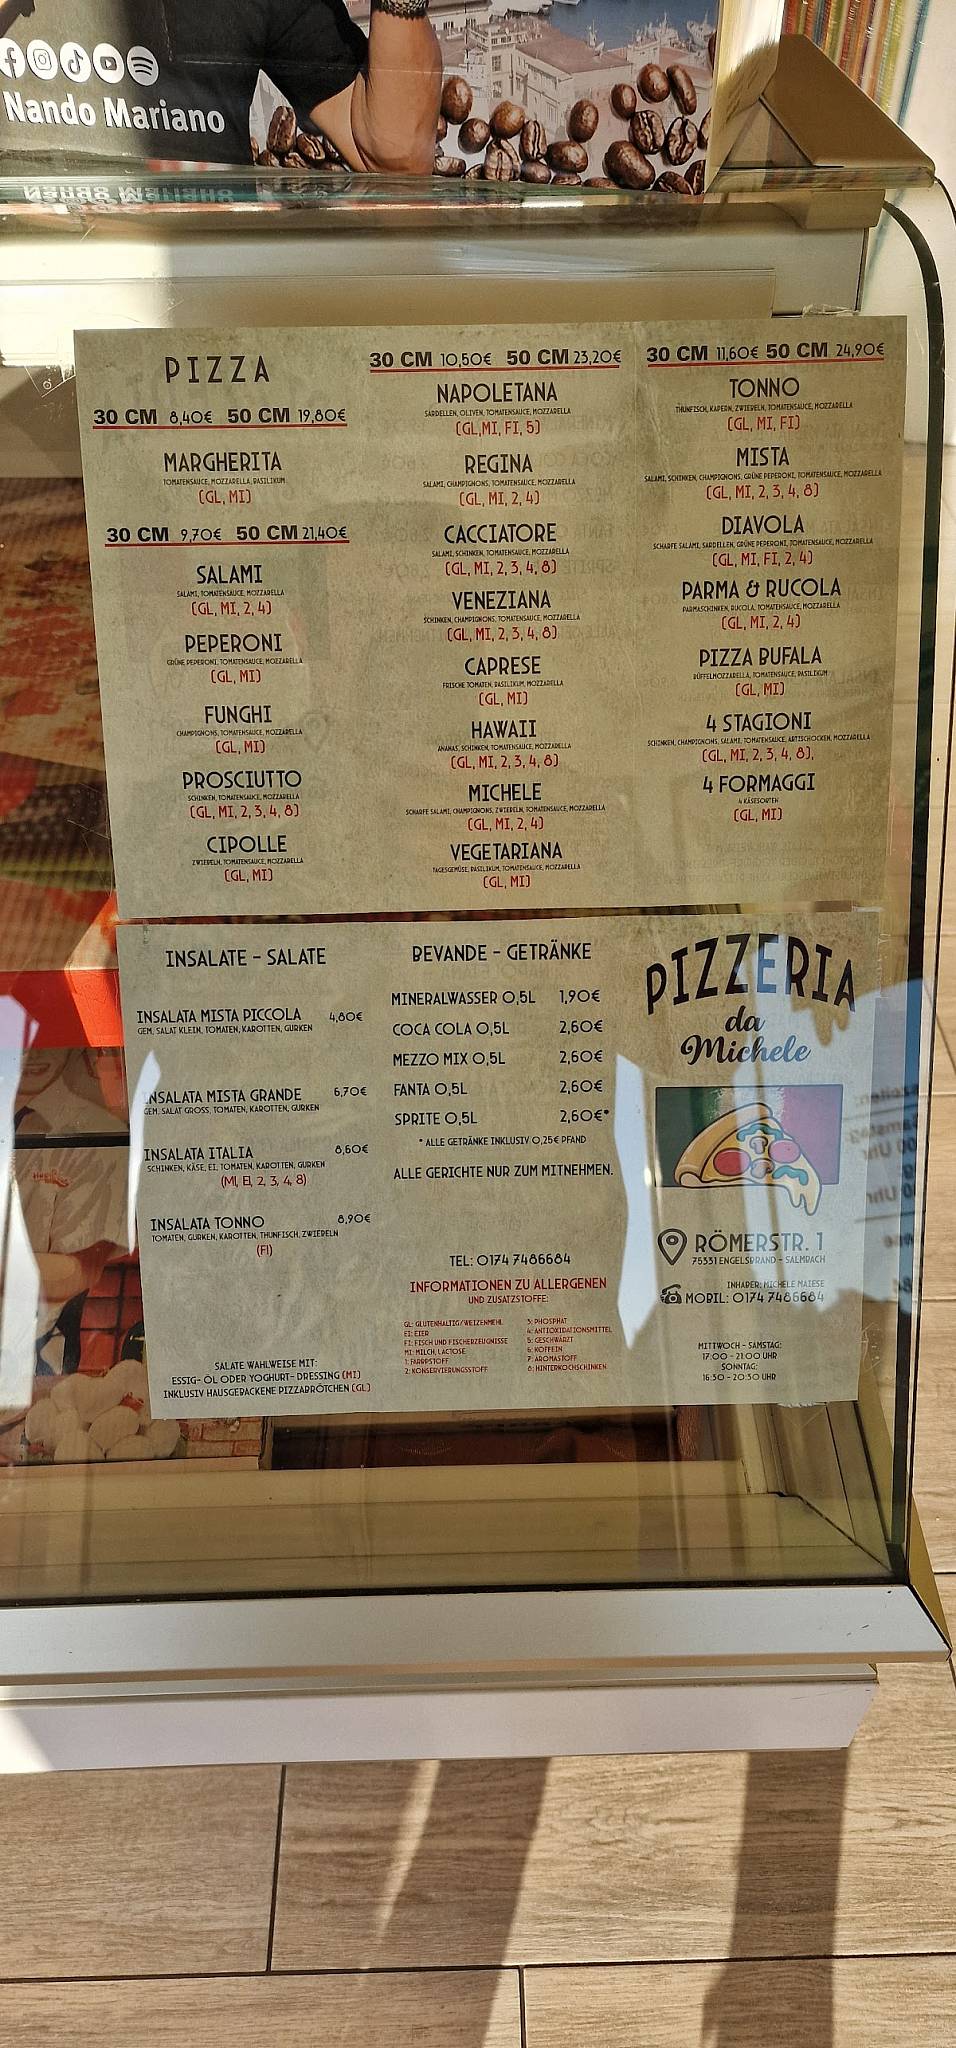 Nando Mariano
PIZZA
30 CM 8,40€ 50 CM 19,80€
MARGHERITA
TOMATENSAUCE, MOZZARELLA, BASILIKUM
(GL, MI)
30 CM 9,70€ 50 CM 21,40€
SALAMI
SALAMI, TOMATENSAUCE, MOZZARELLA
(GL, MI, 2, 4)
PEPERONI
GRÜNE PEPERONI, TOMATENSAUCE, MOZZARELLA
(GL, MI)
FUNGHI
CHAMPIGNONS, TOMATENSAUCE, MOZZARELLA
(GL, MI)
PROSCIUTTO
SCHINKEN, TOMATENSAUCE, MOZZARELLA
(GL, MI, 2, 3, 4, 8)
CIPOLLE
ZWIEBELN, TOMATENSAUCE, MOZZARELLA
(GL, MI)
30 CM 10,50€ 50 CM 23,20€
NAPOLETANA
SARDELLEN, OLIVEN, TOMATENSAUCE, MOZZARELLA
(GL,MI, FI, 5)
REGINA
SALAMI, CHAMPIGNONS, TOMATENSAUCE, MOZZARELLA
(GL, MI, 2, 4)
CACCIATORE
SALAMI, SCHINKEN, TOMATENSAUCE, MOZZARELLA
(GL, MI, 2, 3, 4, 8)
VENEZIANA
SCHINKEN, CHAMPIGNONS, TOMATENSAUCE, MOZZARELLA
(GL, MI, 2, 3, 4, 8)
CAPRESE
FRISCHE TOMATEN, BASILIKUM, MOZZARELLA
(GL, MI)
HAWAII
ANANAS, SCHINKEN, TOMATENSAUCE, MOZZARELLA
(GL, MI, 2, 3, 4, 8)
MICHELE
SCHARFE SALAMI, CHAMPIGNONS, ZWIEBELN, TOMATENSAUCE, MOZZARELLA
(GL, MI, 2, 4)
VEGETARIANA
TAGESGEMÜSE, BASILIKUM, TOMATENSAUCE, MOZZARELLA
(GL, MI)
30 CM 11,60€ 50 CM 24,90€
TONNO
THUNFISCH, KAPERN, ZWIEBELN, TOMATENSAUCE, MOZZARELLA
(GL, MI, FI)
MISTA
SALAMI, SCHINKEN, CHAMPIGNONS, GRÜNE PEPERONI, TOMATENSAUCE, MOZZARELLA
(GL, MI, 2, 3, 4, 8)
DIAVOLA
SCHARFE SALAMI, SARDELLEN, GRÜNE PEPERONI, TOMATENSAUCE, MOZZARELLA
(GL, MI, FI, 2, 4)
PARMA & RUCOLA
PARMASCHINKEN, RUCOLA, TOMATENSAUCE, MOZZARELLA
(GL, MI, 2, 4)
PIZZA BUFALA
BÜFFELMOZZARELLA, TOMATENSAUCE, BASILIKUM
(GL, MI)
4 STAGIONI
SCHINKEN, CHAMPIGNONS, SALAMI, TOMATENSAUCE, ARTISCHOCKEN, MOZZARELLA
(GL, MI, 2, 3, 4, 8),
4 FORMAGGI
4 KÄSESORTEN
(GL, MI)
INSALATE - SALATE
INSALATA MISTA PICCOLA 4,80€
GEM. SALAT KLEIN, TOMATEN, KAROTTEN, GURKEN
INSALATA MISTA GRANDE 6,70€
GEM. SALAT GROSS, TOMATEN, KAROTTEN, GURKEN
INSALATA ITALIA 8,60€
SCHINKEN, KÄSE, EI, TOMATEN, KAROTTEN, GURKEN
(MI, EI, 2, 3, 4, 8)
INSALATA TONNO 8,90€
TOMATEN, GURKEN, KAROTTEN, THUNFISCH, ZWIEBELN
(FI)
SALATE WAHLWEISE MIT:
ESSIG- ÖL ODER YOGHURT- DRESSING (MI)
INKLUSIV HAUSGEBACKENE PIZZABRÖTCHEN (GL)
BEVANDE - GETRÄNKE
MINERALWASSER 0,5L 1,90€
COCA COLA 0,5L 2,60€
MEZZO MIX 0,5L 2,60€
FANTA 0,5L 2,60€
SPRITE 0,5L 2,60€*
* ALLE GETRÄNKE INKLUSIV 0,25€ PFAND
ALLE GERICHTE NUR ZUM MITNEHMEN.
TEL: 0174 7486684
INFORMATIONEN ZU ALLERGENEN
UND ZUSATZSTOFFE:
GL: GLUTENHALTIG/WEIZENMEHL
EI: EIER
FI: FISCH UND FISCHERZEUGNISSE
MI: MILCH, LACTOSE
1: FARBSTOFF
2: KONSERVIERUNGSSTOFF
3: PHOSPHAT
4: ANTIOXIDATIONSMITTEL
5: GESCHWÄRZT
6: KOFFEIN
7: AROMASTOFF
8: HINTERKOCHSCHINKEN
PIZZERIA
da
Michele
RÖMERSTR. 1
75331 ENGELSBRAND - SALMBACH
INHABER: MICHELE MAIESE
MOBIL: 0174 7486684
MITTWOCH - SAMSTAG:
17:00 - 21:00 UHR
SONNTAG:
16:30 - 20:30 UHR